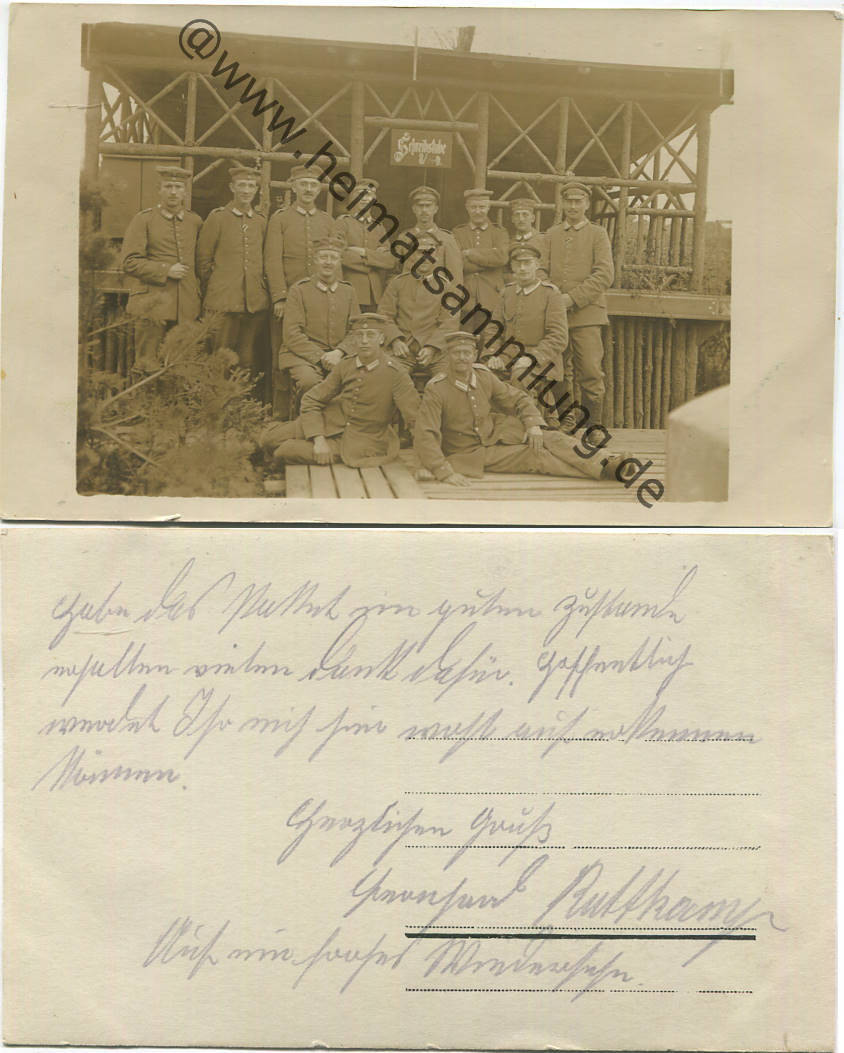 @www.heimatsammlung.de
Schreibstube
Habe das Packet im guten Zustande
erhalten vielen Dank dafür. Hoffentlich
werdet Ihr mich hier wohl auch erkennen
können.
Herzlichen Gruß
Bernhard Ruttkamp
Auf ein frohes Wiedersehn.